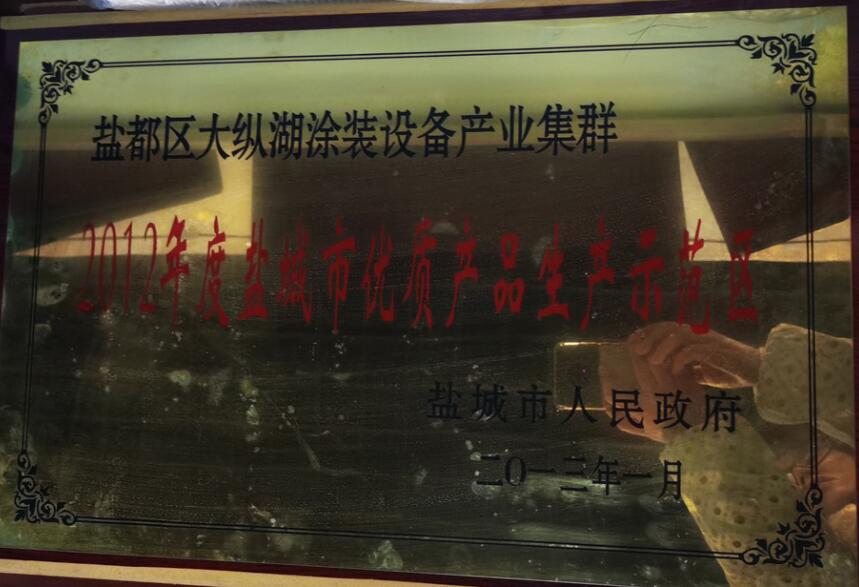 盐都区大纵湖涂装设备产业集群
2012年度盐城市优质产品生产示范区
盐城市人民政府
二〇一三年一月